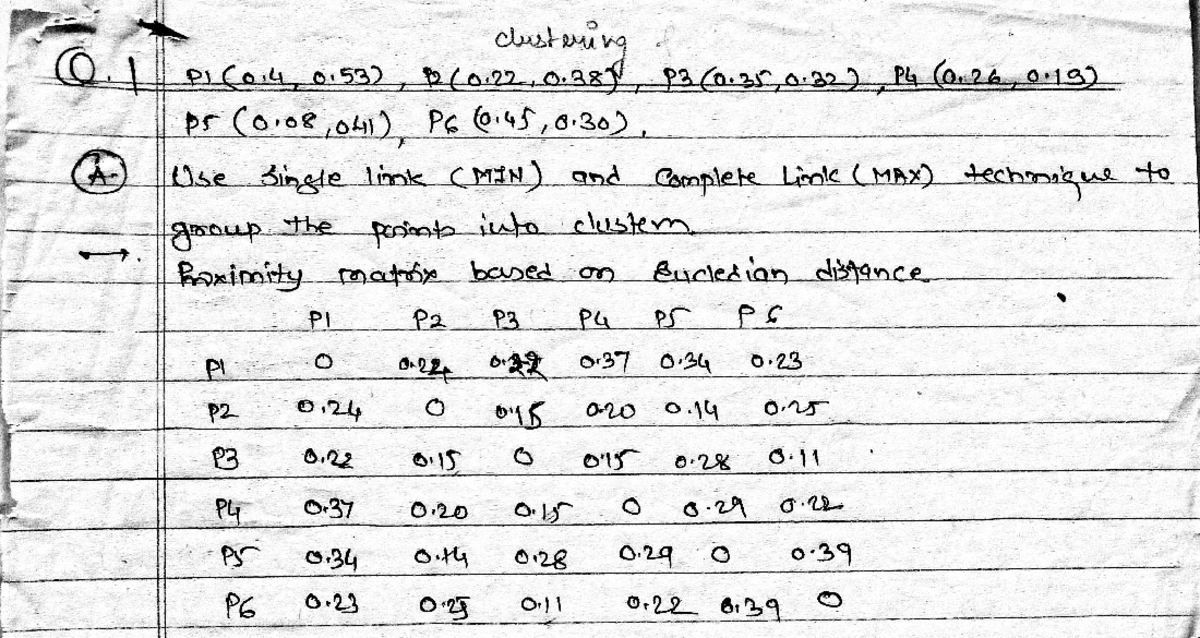 clustering
Q.1 P1 (0.4, 0.53), P2 (0.22, 0.38), P3 (0.35, 0.32), P4 (0.26, 0.19)
P5 (0.08, 041), P6 (0.45, 0.30).
A. Use Single link (MIN) and Complete Link (MAX) technique to
group the points into clustem.
→.
Proximity matrix based on Eucledian distance
P1 P2 P3 P4 P5 P6
P1 0 0.24 0.22 0.37 0.34 0.23
P2 0.24 0 0.15 0.20 0.14 0.25
P3 0.22 0.15 0 0.15 0.28 0.11
P4 0.37 0.20 0.15 0 0.29 0.22
P5 0.34 0.14 0.28 0.29 0 0.39
P6 0.23 0.25 0.11 0.22 0.39 0